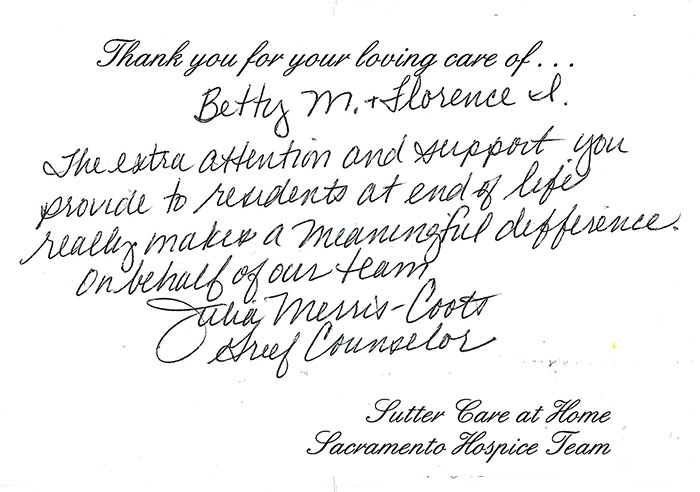 Thank you for your loving care of . . .
Betty M. + Florence I.
The extra attention and support you
provide to residents at end of life
really makes a meaningful difference.
On behalf of our team
Julia Merris-Coots
Greef Counselor
Sutter Care at Home
Sacramento Hospice Team